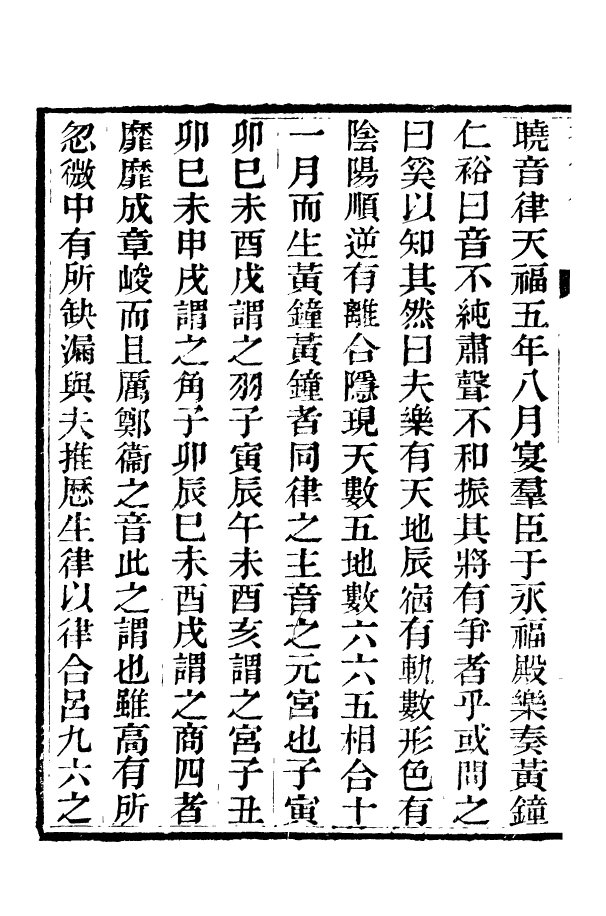 曉音律天福五年八月宴羣臣于永福殿樂奏黃鐘
仁裕曰音不純肅聲不和振其將有爭者乎或問之
曰奚以知其然曰夫樂有天地辰宿有軌數形色有
陰陽順逆有離合隱現天數五地數六六五相合十
一月而生黃鐘黃鐘者同律之主音之元宮也子寅
卯巳未酉戌謂之羽子寅辰午未酉亥謂之宮子丑
卯巳未申戌謂之角子卯辰巳未酉戌謂之商四者
靡靡成章峻而且厲鄭衞之音此之謂也雖高有所
忽微中有所缺漏與夫推歷生律以律合呂九六之